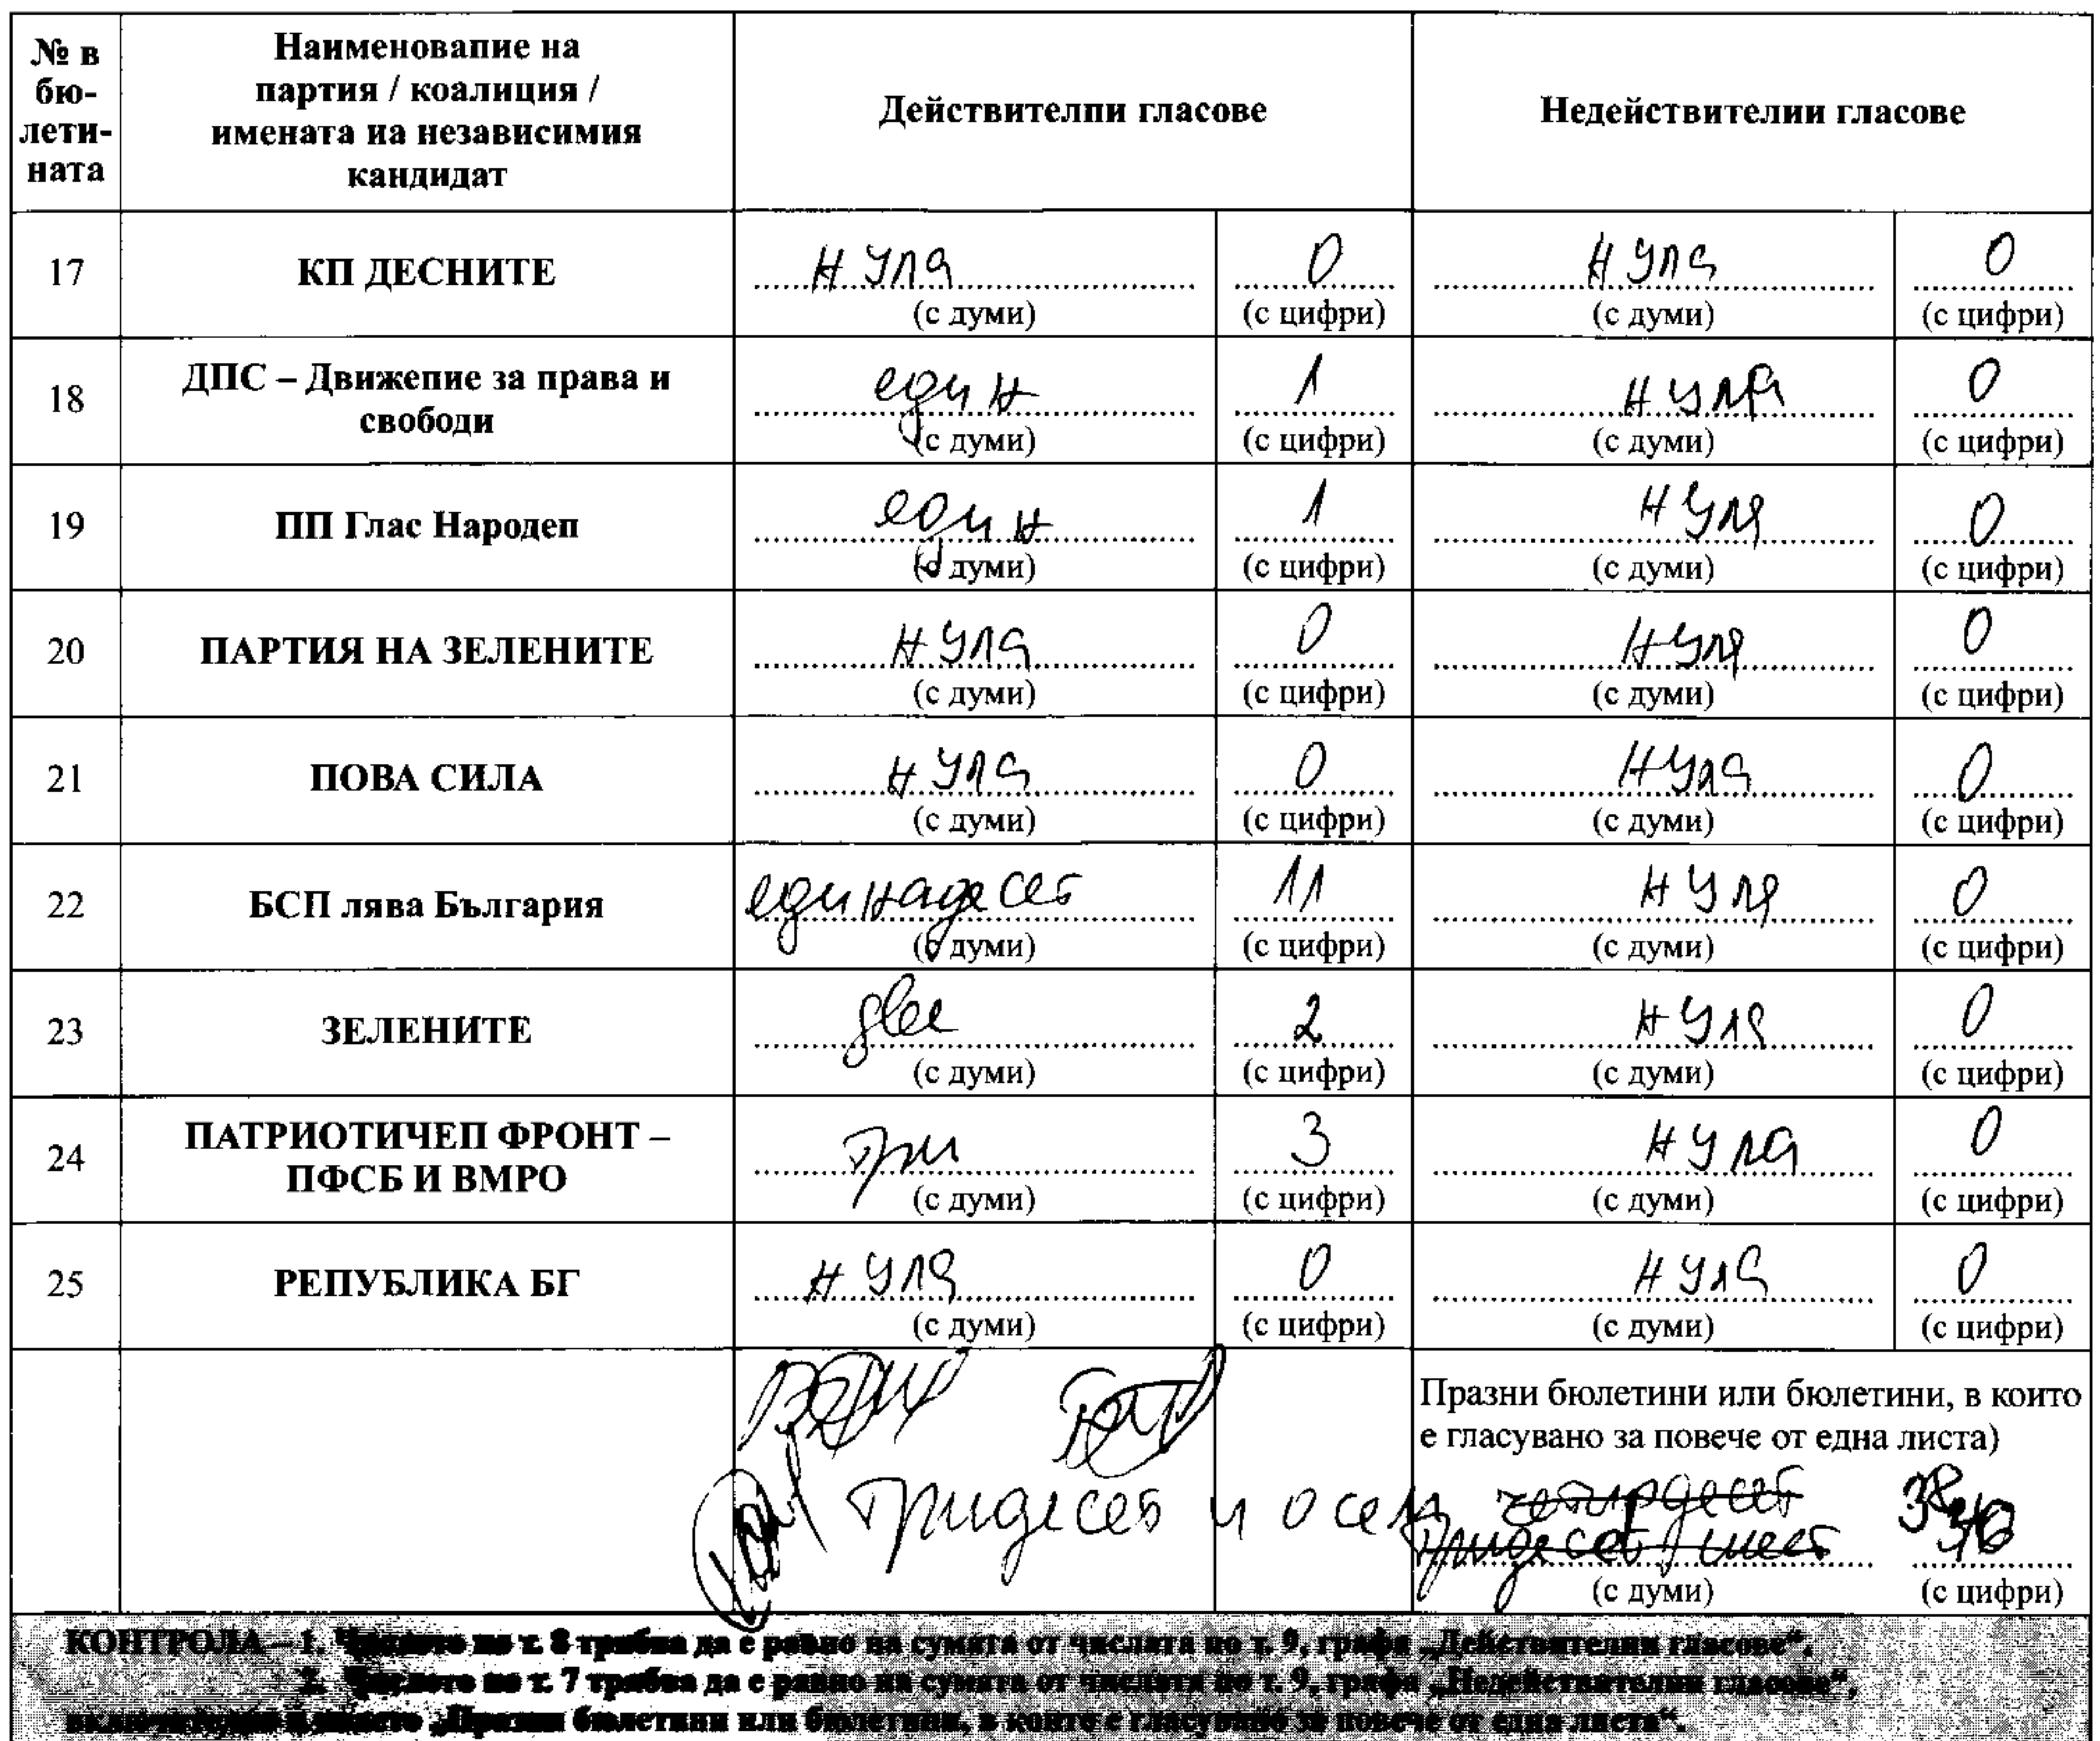 № в бю-лети-ната
Наименовапие на партия / коалиция / имената иа независимия кандидат
Действителпи гласове
Недействителии гласове
17 КП ДЕСНИТЕ нула (с думи) 0 (с цифри) нула (с думи) 0 (с цифри)
18 ДПС – Движепие за права и свободи един (с думи) 1 (с цифри) нула (с думи) 0 (с цифри)
19 ПП Глас Народеп един (с думи) 1 (с цифри) нула (с думи) 0 (с цифри)
20 ПАРТИЯ НА ЗЕЛЕНИТЕ нула (с думи) 0 (с цифри) нула (с думи) 0 (с цифри)
21 ПОВА СИЛА нула (с думи) 0 (с цифри) нула (с думи) 0 (с цифри)
22 БСП лява България единадесет (с думи) 11 (с цифри) нула (с думи) 0 (с цифри)
23 ЗЕЛЕНИТЕ две (с думи) 2 (с цифри) нула (с думи) 0 (с цифри)
24 ПАТРИОТИЧЕП ФРОНТ – ПФСБ И ВМРО три (с думи) 3 (с цифри) нула (с думи) 0 (с цифри)
25 РЕПУБЛИКА БГ нула (с думи) 0 (с цифри) нула (с думи) 0 (с цифри)
Празни бюлетини или бюлетини, в които
е гласувано за повече от една листа)
тридесет и осем четирдесет 38
тридесет и шест
(с думи) (с цифри)
КОНТРОЛА – 1. Числото по т. 8 трябва да е равно на сумата от числата по т. 9, графа „Действителни гласове“.
2. Числото по т. 7 трябва да е равно на сумата от числата по т. 9, графа „Недействителни гласове“,
включително и мястото „Празни бюлетини или бюлетини, в които е гласувано за повече от една листа“.